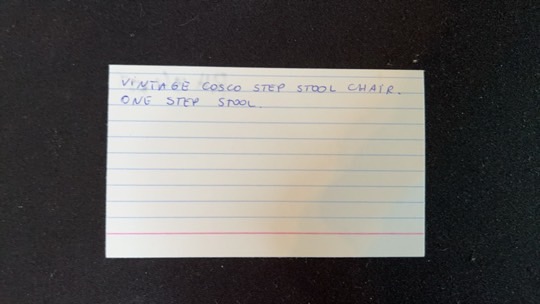 VINTAGE COSCO STEP STOOL CHAIR.
ONE STEP STOOL.